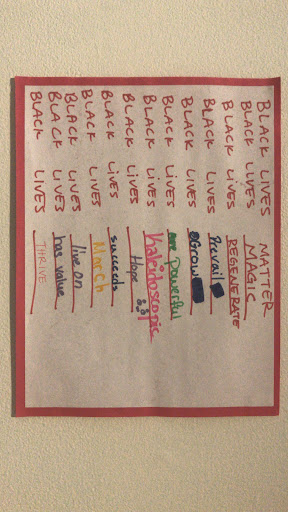 BLACK LIVES MATTER
BLACK LIVES MAGIC
BLACK LIVES REGENERATE
BLACK LIVES Prevail
BLACK LIVES Grow
BLACK LIVES are powerful
BLACK LIVES Kaleidoscopic
BLACK LIVES Hope
BLACK LIVES succeeds
BLACK LIVES March
BLACK LIVES live on
BLACK LIVES has value
BLACK LIVES THRIVE